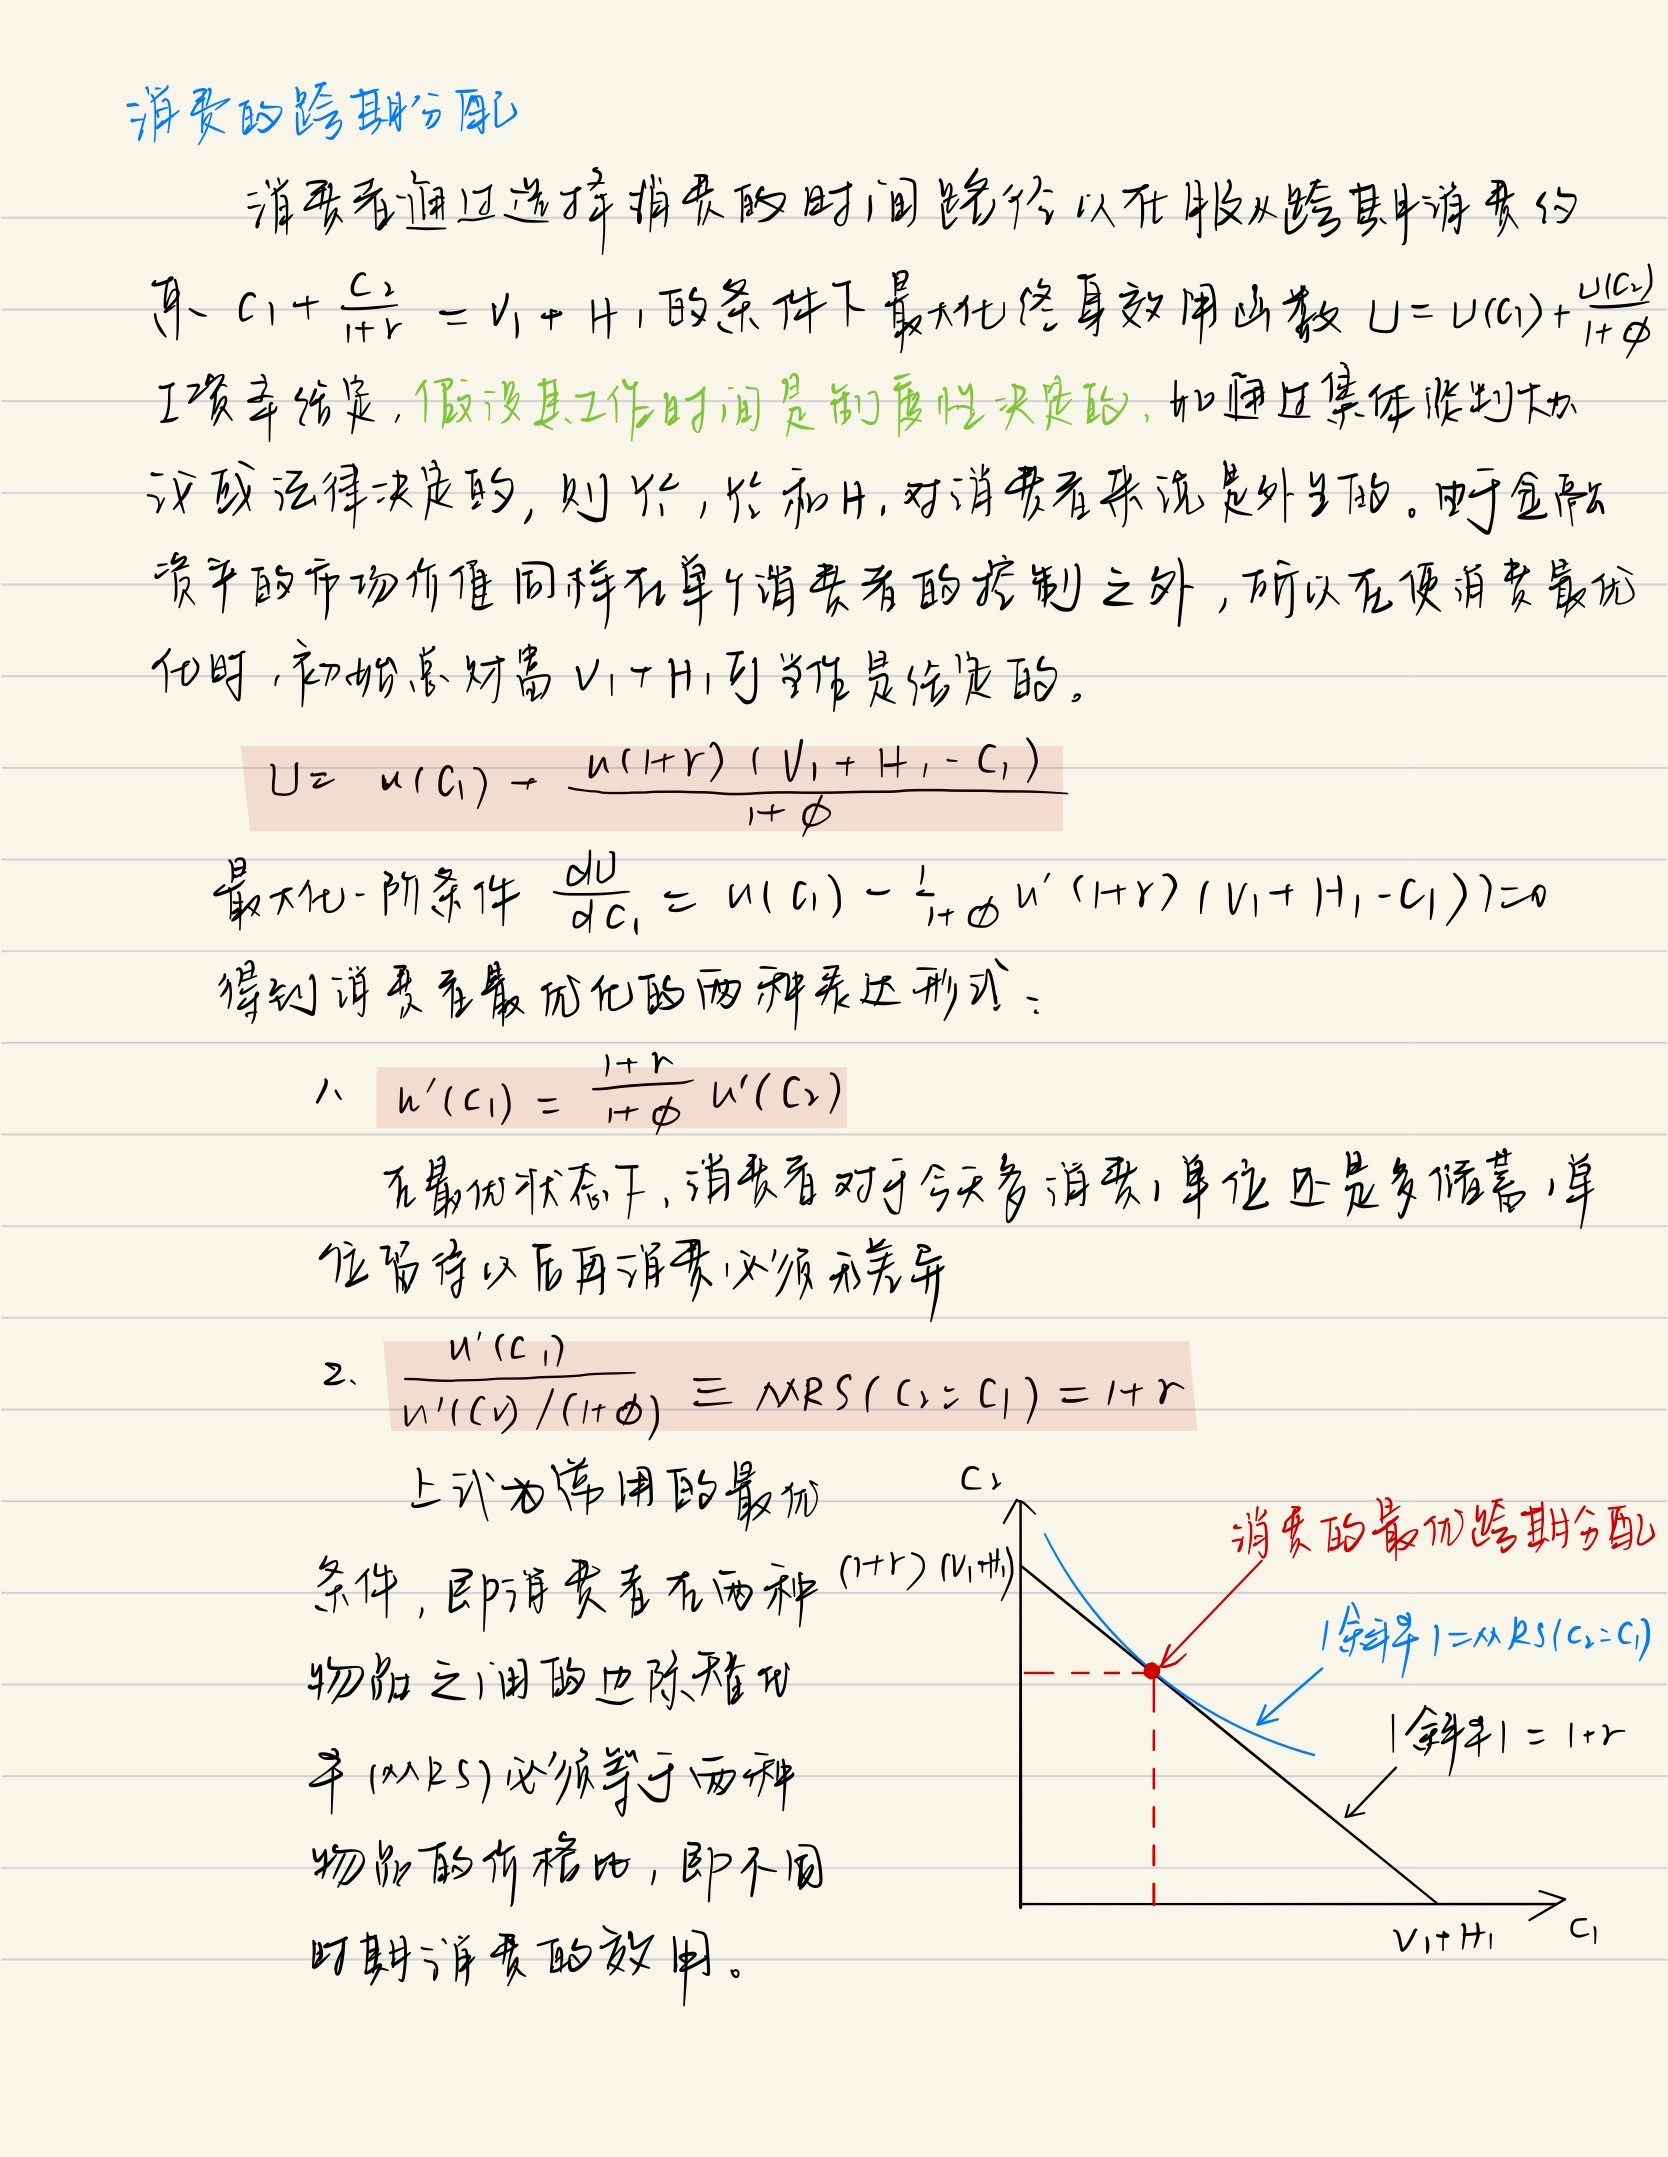 消费的跨期分配
消费者通过选择消费的时间路径以在服从跨期消费约
束 C₁ + C₂/(1+r) = V₁ + H₁ 的条件下最大化终身效用函数 U = U(C₁) + U(C₂)/(1+φ)
工资率给定,假设其工作时间是制度性决定的,如通过集体谈判协
议或法律决定的,则 和H₁对消费者来说是外生的。由于金融
资产的市场价值同样在单个消费者的控制之外,所以在使消费最优
化时,初始总财富V₁+H₁可当作是给定的。
U = u(C₁) + u(1+r)(V₁+H₁-C₁)/(1+φ)
最大化一阶条件 dU/dC₁ = u(C₁) - 1/(1+φ) u'(1+r)(V₁+H₁-C₁))=0
得到消费者最优化的两种表达形式:
1、 u'(C₁) = (1+r)/(1+φ) u'(C₂)
在最优状态下,消费者对于今天多消费1单位还是多储蓄1单
位留待以后再消费必须无差异
2、 u'(C₁)/(u'(C₂)/(1+φ)) ≡ MRS(C₂:C₁) = 1+r
上式为常用的最优
条件,即消费者在两种
物品之间的边际替代
率(MRS)必须等于两种
物品的价格比,即不同
时期消费的效用。
C₂
消费的最优跨期分配
(1+r)(V₁+H₁)
|斜率|=MRS(C₂:C₁)
|斜率| = 1+r
V₁+H₁
C₁